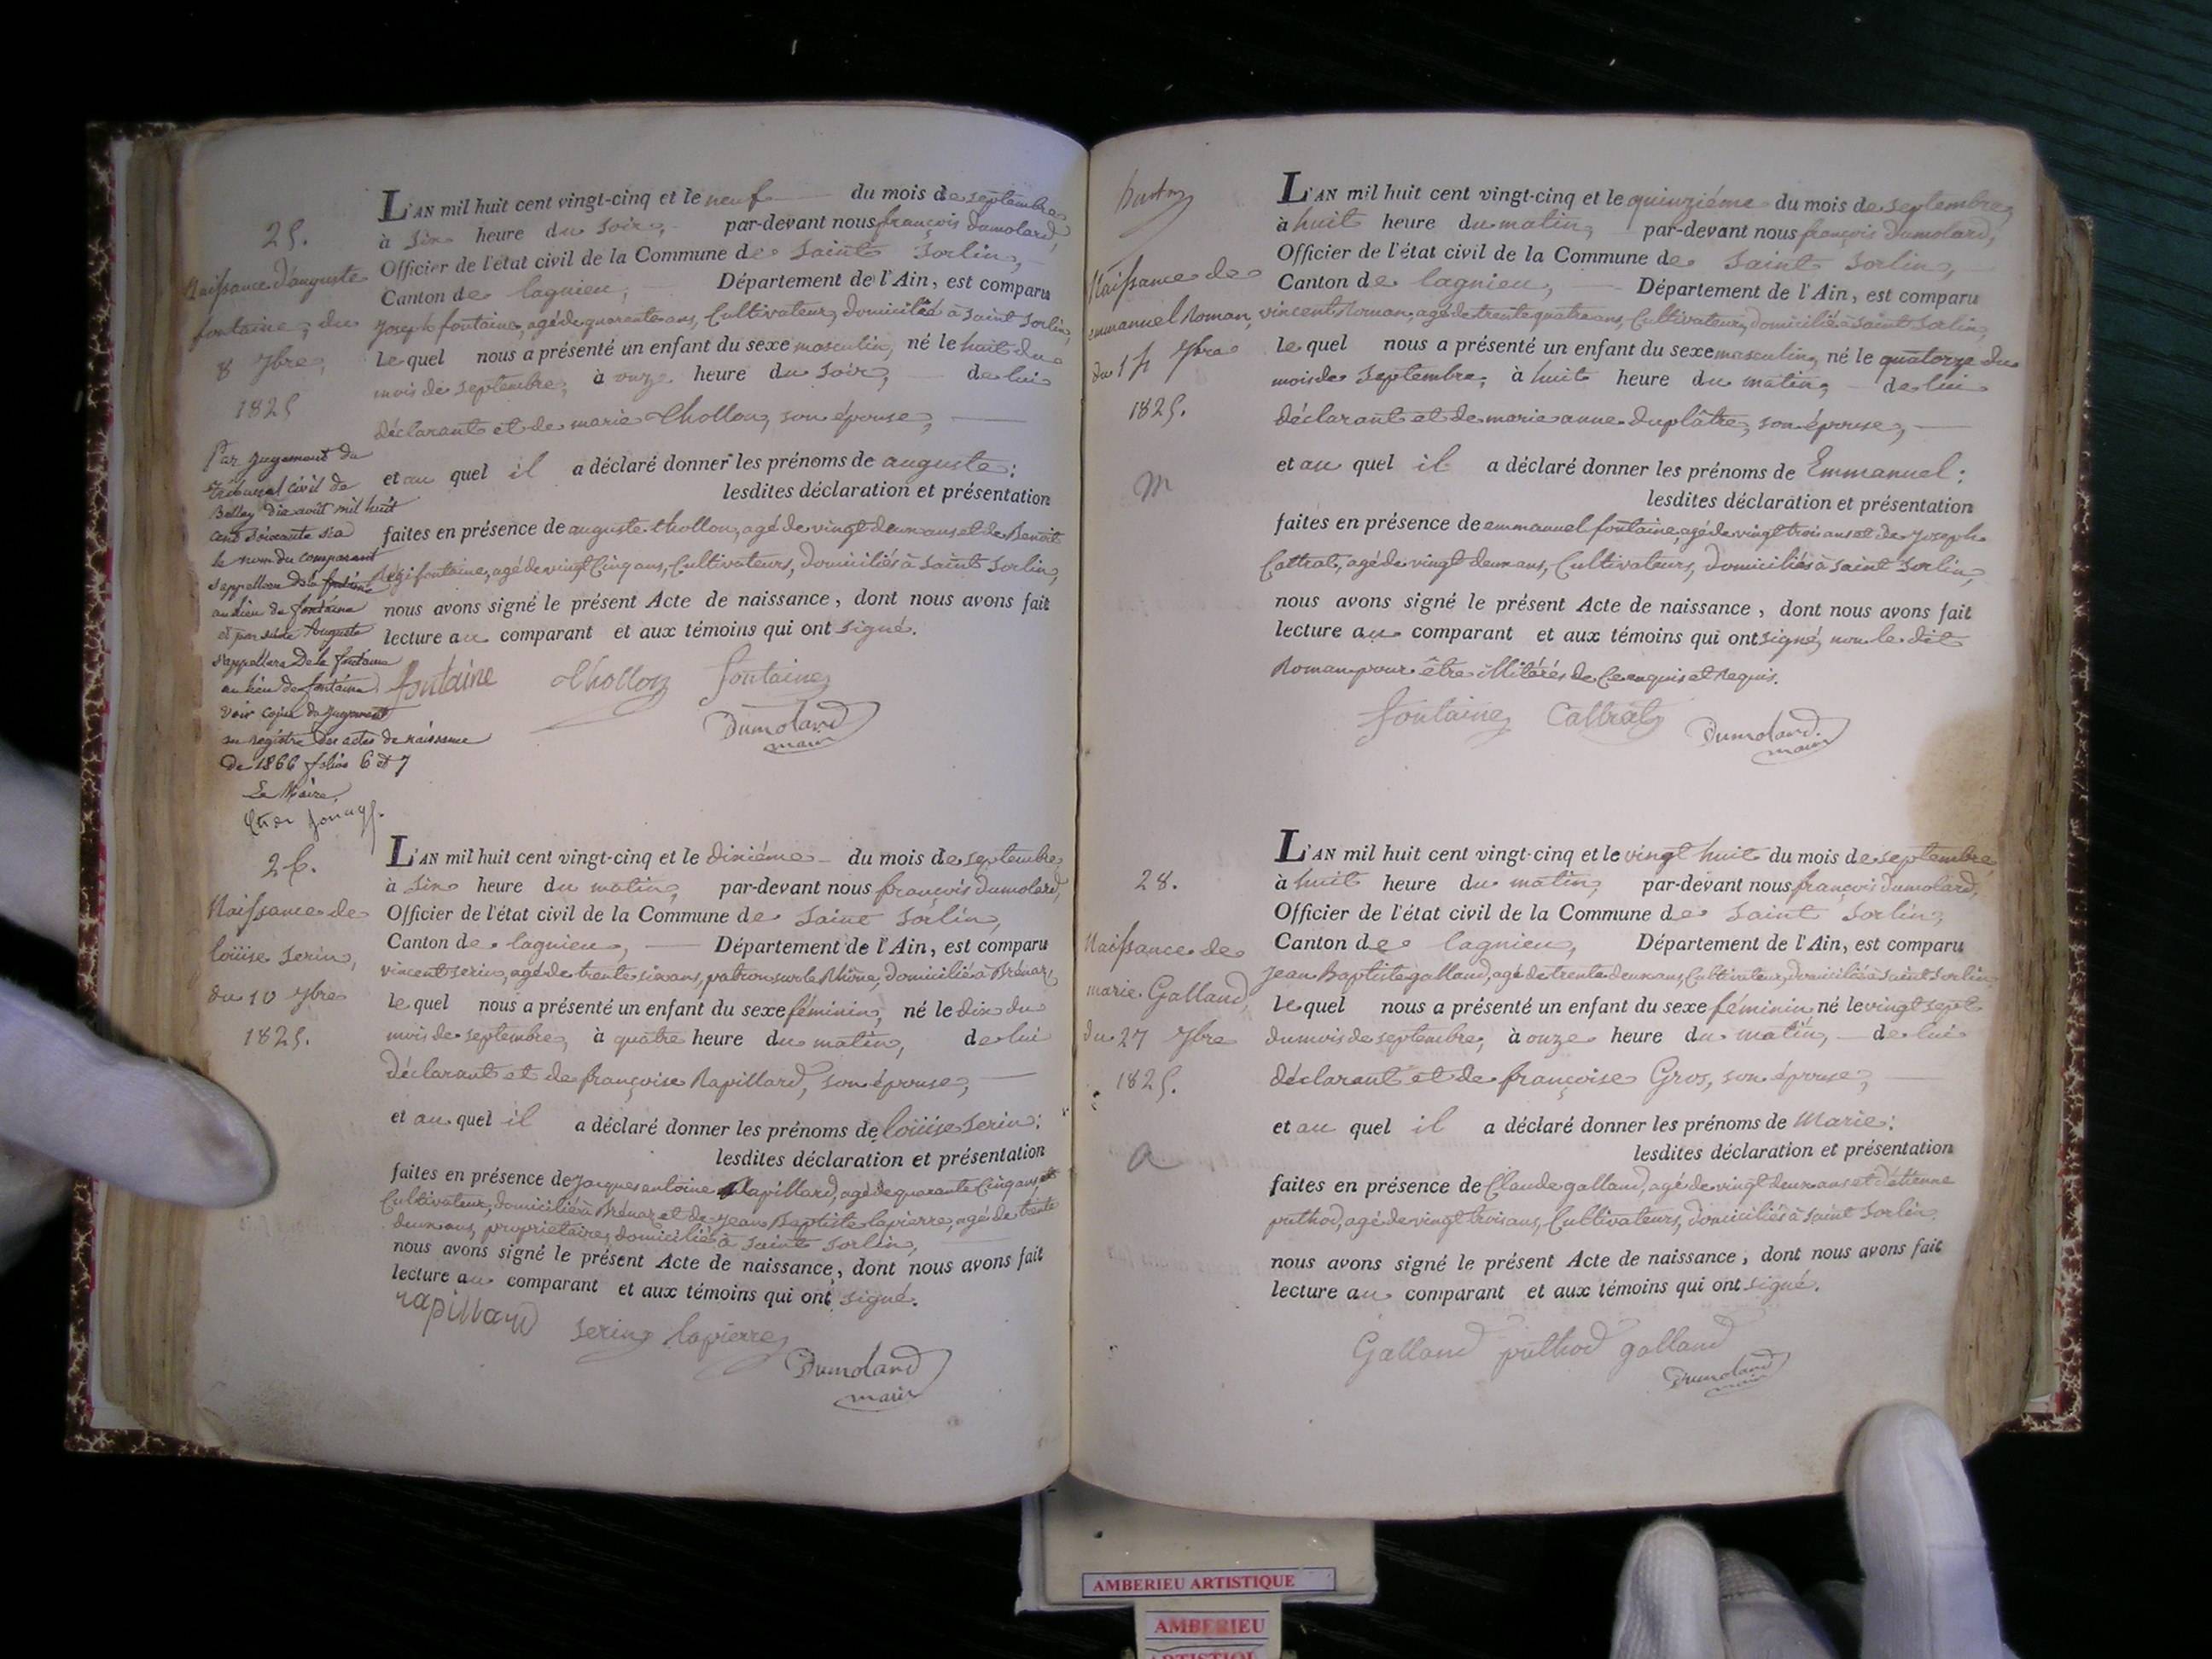 25.
Naissance d'auguste
fontaine, du
8 7bre,
1825
Par jugement du
Tribunal civil de
Belley dix août mil huit
cent soixante six
le nom du comparant
s'appellera De la fontaine
au lieu de fontaine
et par suite Auguste
s'appellera De la fontaine
au lieu de fontaine
voir copie du jugement
au registre des actes de naissance
de 1866 folios 6 et 7
Le Maire,
L'AN mil huit cent vingt-cinq et le neuf du mois de septembre,
à six heure du soir, par-devant nous françois Dumolard,
Officier de l'état civil de la Commune de Saint Sorlin,
Canton de lagnieu, Département de l'Ain, est comparu
Joseph fontaine, agé de quarente ans, Cultivateur, domicilié à Saint Sorlin,
le quel nous a présenté un enfant du sexe masculin, né le huit du
mois de septembre, à onze heure du soir, de lui
déclarant et de marie Chollon, son épouse,
et au quel il a déclaré donner les prénoms de auguste:
lesdites déclaration et présentation
faites en présence de auguste chollon, agé de vingt deux ans et de Benoit
Régi fontaine, agé de vingt Cinq ans, Cultivateurs, domiciliés à Saint Sorlin,
nous avons signé le présent Acte de naissance, dont nous avons fait
lecture au comparant et aux témoins qui ont signé.
fontaine Chollon fontaine
Dumolard
maire
26.
Naissance de
loüise Serin,
du 10 7bre
1825.
L'AN mil huit cent vingt-cinq et le dixiéme du mois de septembre,
à six heure du matin, par-devant nous françois Dumolard,
Officier de l'état civil de la Commune de Saint Sorlin,
Canton de lagnieu, Département de l'Ain, est comparu
vincent Serin, agé de trente six ans, patron sur le Rhône, domicilié à Brénaz,
le quel nous a présenté un enfant du sexe féminin, né le dix du
mois de septembre, à quatre heure du matin, de lui
déclarant et de françoise Rapillard, son épouse,
et au quel il a déclaré donner les prénoms de loüise Serin:
lesdites déclaration et présentation
faites en présence de Jacques antoine Rapillard, agé de quarante Cinq ans,
Cultivateur, domicilié à Brénaz et de Jean Baptiste lapierre, agé de trente
deux ans, proprietaire, domicilié à Saint Sorlin,
nous avons signé le présent Acte de naissance, dont nous avons fait
lecture au comparant et aux témoins qui ont signé.
rapillard Serin lapierre
Dumolard
maire
Naissance de
emmanuel Roman,
du 14 7bre
1825.
m
L'AN mil huit cent vingt-cinq et le quinziéme du mois de septembre,
à huit heure du matin, par-devant nous françois Dumolard,
Officier de l'état civil de la Commune de Saint Sorlin,
Canton de lagnieu, Département de l'Ain, est comparu
vincent Roman, agé de trente quatre ans, Cultivateur, domicilié à Saint Sorlin,
le quel nous a présenté un enfant du sexe masculin, né le quatorze du
mois de septembre, à huit heure du matin, de lui
déclarant et de marie anne duplâtre, son épouse,
et au quel il a déclaré donner les prénoms de Emmanuel:
lesdites déclaration et présentation
faites en présence de emmanuel fontaine, agé de vingt trois ans et de Joseph
Cattrat, agé de vingt deux ans, Cultivateurs, domiciliés à Saint Sorlin,
nous avons signé le présent Acte de naissance, dont nous avons fait
lecture au comparant et aux témoins qui ont signé, non le dit
Roman pour être illitérés de Ce enquis et Requis.
fontaine Cattrat Dumolard
maire
28.
Naissance de
marie Galland,
du 27 7bre
1825.
a
L'AN mil huit cent vingt-cinq et le vingt huit du mois de septembre,
à huit heure du matin, par-devant nous françois Dumolard,
Officier de l'état civil de la Commune de Saint Sorlin,
Canton de lagnieu, Département de l'Ain, est comparu
Jean Baptiste galland, agé de trente deux ans, Cultivateur, domicilié à Saint Sorlin,
le quel nous a présenté un enfant du sexe féminin, né le vingt sept
du mois de septembre, à onze heure du matin, de lui
déclarant et de françoise Gros, son épouse,
et au quel il a déclaré donner les prénoms de Marie:
lesdites déclaration et présentation
faites en présence de Claude galland, agé de vingt deux ans et d'étienne
puthod, agé de vingt trois ans, Cultivateurs, domiciliés à Saint Sorlin
nous avons signé le présent Acte de naissance, dont nous avons fait
lecture au comparant et aux témoins qui ont signé.
Galland puthod galland
Dumolard
maire
AMBERIEU ARTISTIQUE
AMBERIEU
ARTISTIQUE